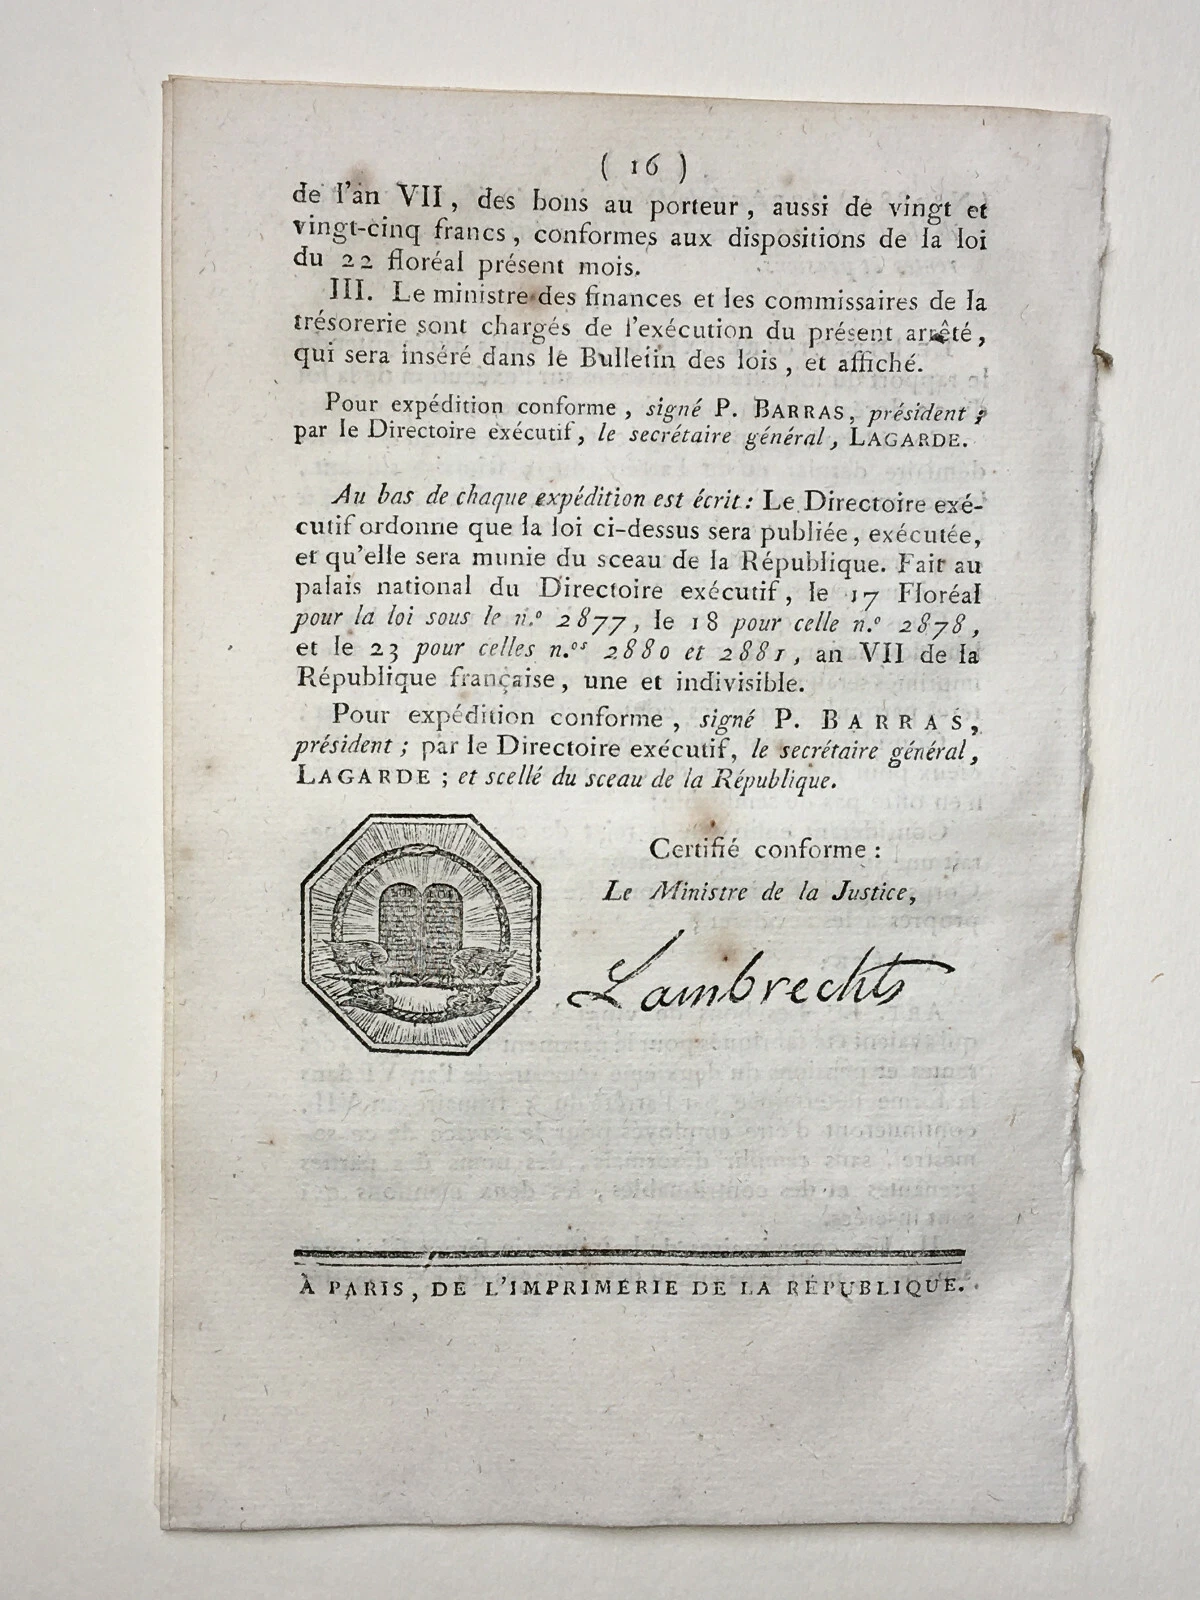 ( 16 )
de l'an VII, des bons au porteur, aussi de vingt et
vingt-cinq francs, conformes aux dispositions de la loi
du 22 floréal présent mois.
III. Le ministre des finances et les commissaires de la
trésorerie sont chargés de l'exécution du présent arrêté,
qui sera inséré dans le Bulletin des lois, et affiché.
Pour expédition conforme, signé P. BARRAS, président;
par le Directoire exécutif, le secrétaire général, LAGARDE.
Au bas de chaque expédition est écrit: Le Directoire exé-
cutif ordonne que la loi ci-dessus sera publiée, exécutée,
et qu'elle sera munie du sceau de la République. Fait au
palais national du Directoire exécutif, le 17 Floréal
pour la loi sous le n.º 2877, le 18 pour celle n.º 2878,
et le 23 pour celles n.ºˢ 2880 et 2881, an VII de la
République française, une et indivisible.
Pour expédition conforme, signé P. BARRAS,
président; par le Directoire exécutif, le secrétaire général,
LAGARDE; et scellé du sceau de la République.
Certifié conforme:
Le Ministre de la Justice,
Lambrechts
À PARIS, DE L'IMPRIMERIE DE LA RÉPUBLIQUE.